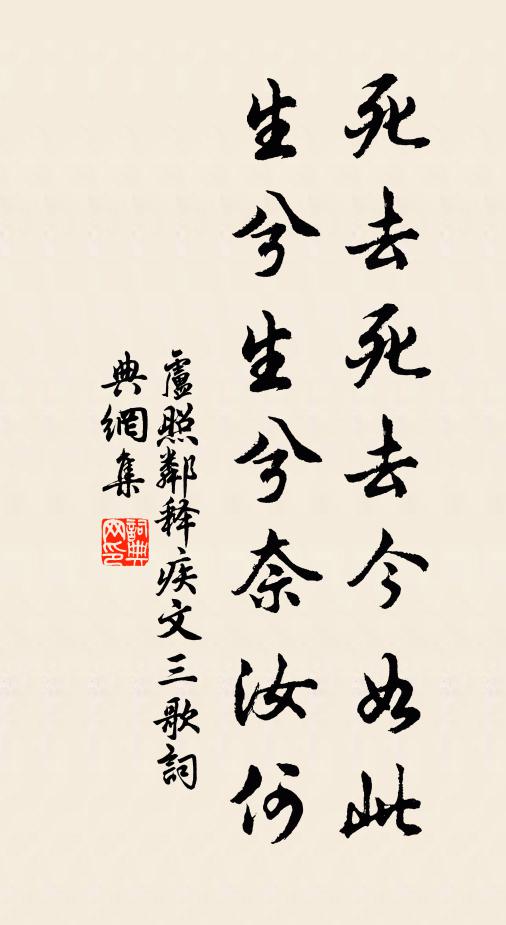 死去死去今如此
生兮生兮奈汝何
盧照鄰释疾文三歌詞
典網集
詞典網印